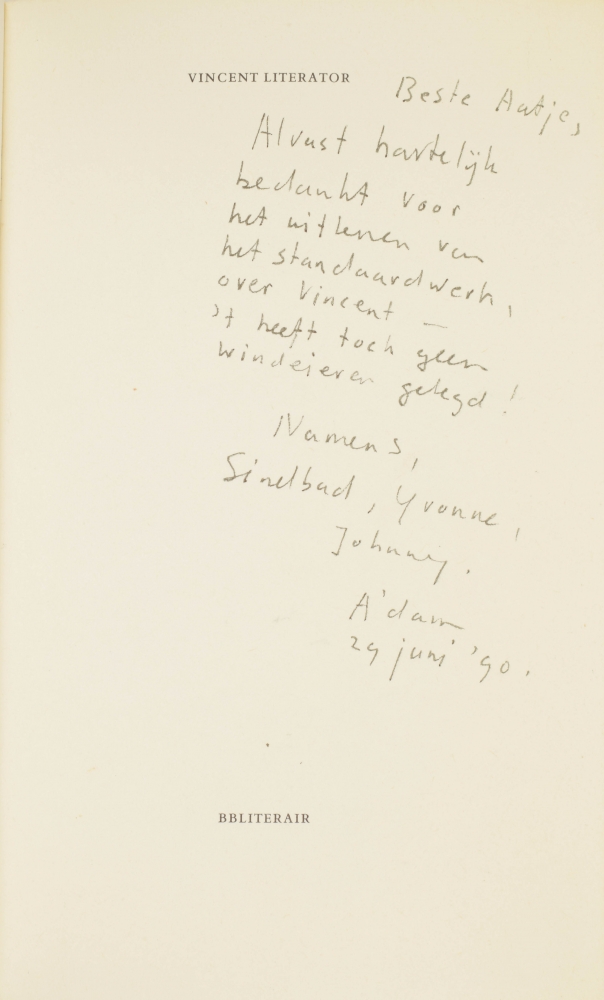 VINCENT LITERATOR
Beste Aatje,
Alvast hartelijk
bedankt voor
het uitlenen van
het standaardwerk,
over Vincent —
't heeft toch geen
windeieren gelegd!
Namens,
Sindbad, Yvonne,
Johnny.
A'dam
29 juni '90.
BBLITERAIR